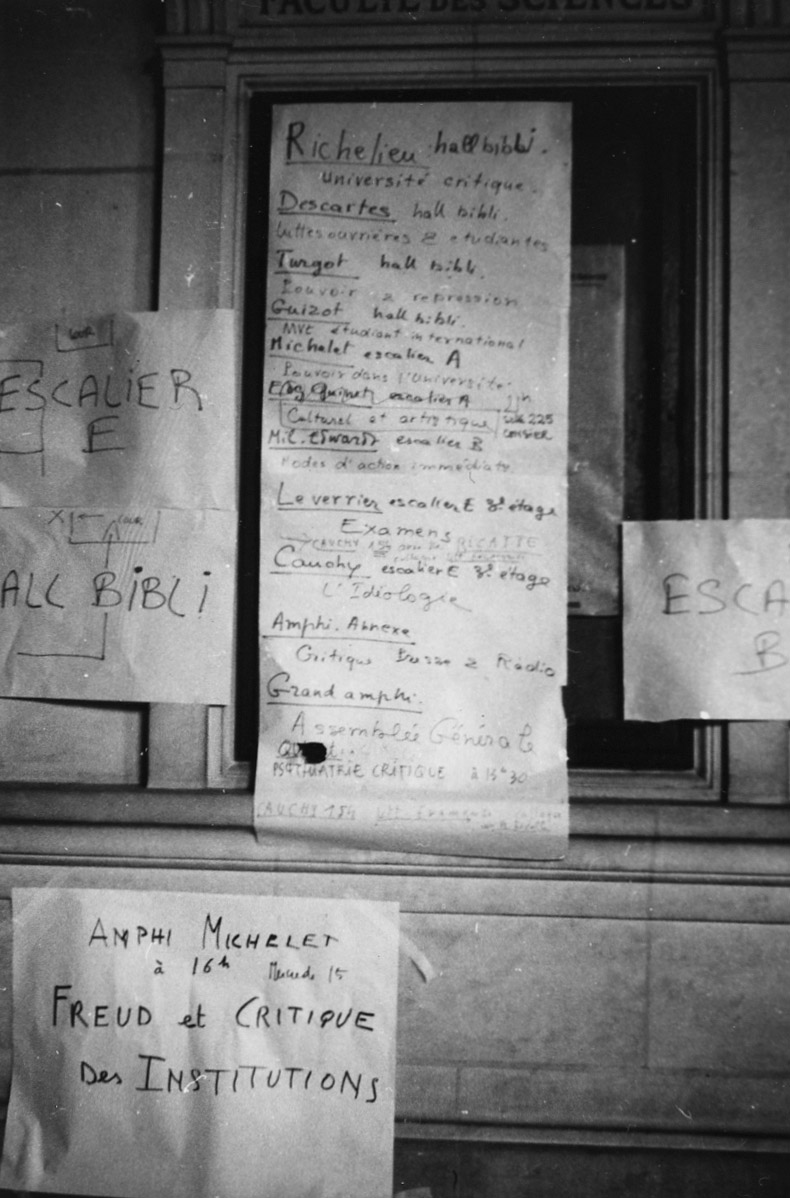 FACULTÉ DES SCIENCES
Richelieu hall bibli.
université critique.
Descartes hall bibli.
luttes ouvrières & etudiantes
Turgot hall bibli.
Pouvoir & repression
Guizot hall bibli.
MVt étudiant international
Michelet escalier A
Pouvoir dans l'Université
Edg Quinet escalier A
Culturel et artistique
225
CENSIER
Mil. Edwards escalier B
Modes d'action immédiats
Le verrier escalier E 3e étage
Examens
CAUCHY 154
Cauchy escalier E 3e étage
L'Idiologie
Amphi. Annexe
Critique Presse & Radio
Grand amphi.
Assemblée Générale
PSYCHIATRIE CRITIQUE à 15h30
CAUCHY 154
COUR
ESCALIER
E
X
COUR
ALL BIBLI
ESCA
B
AMPHI MICHELET
à 16h Mercredi 15
FREUD et CRITIQUE
Des INSTITUTIONS